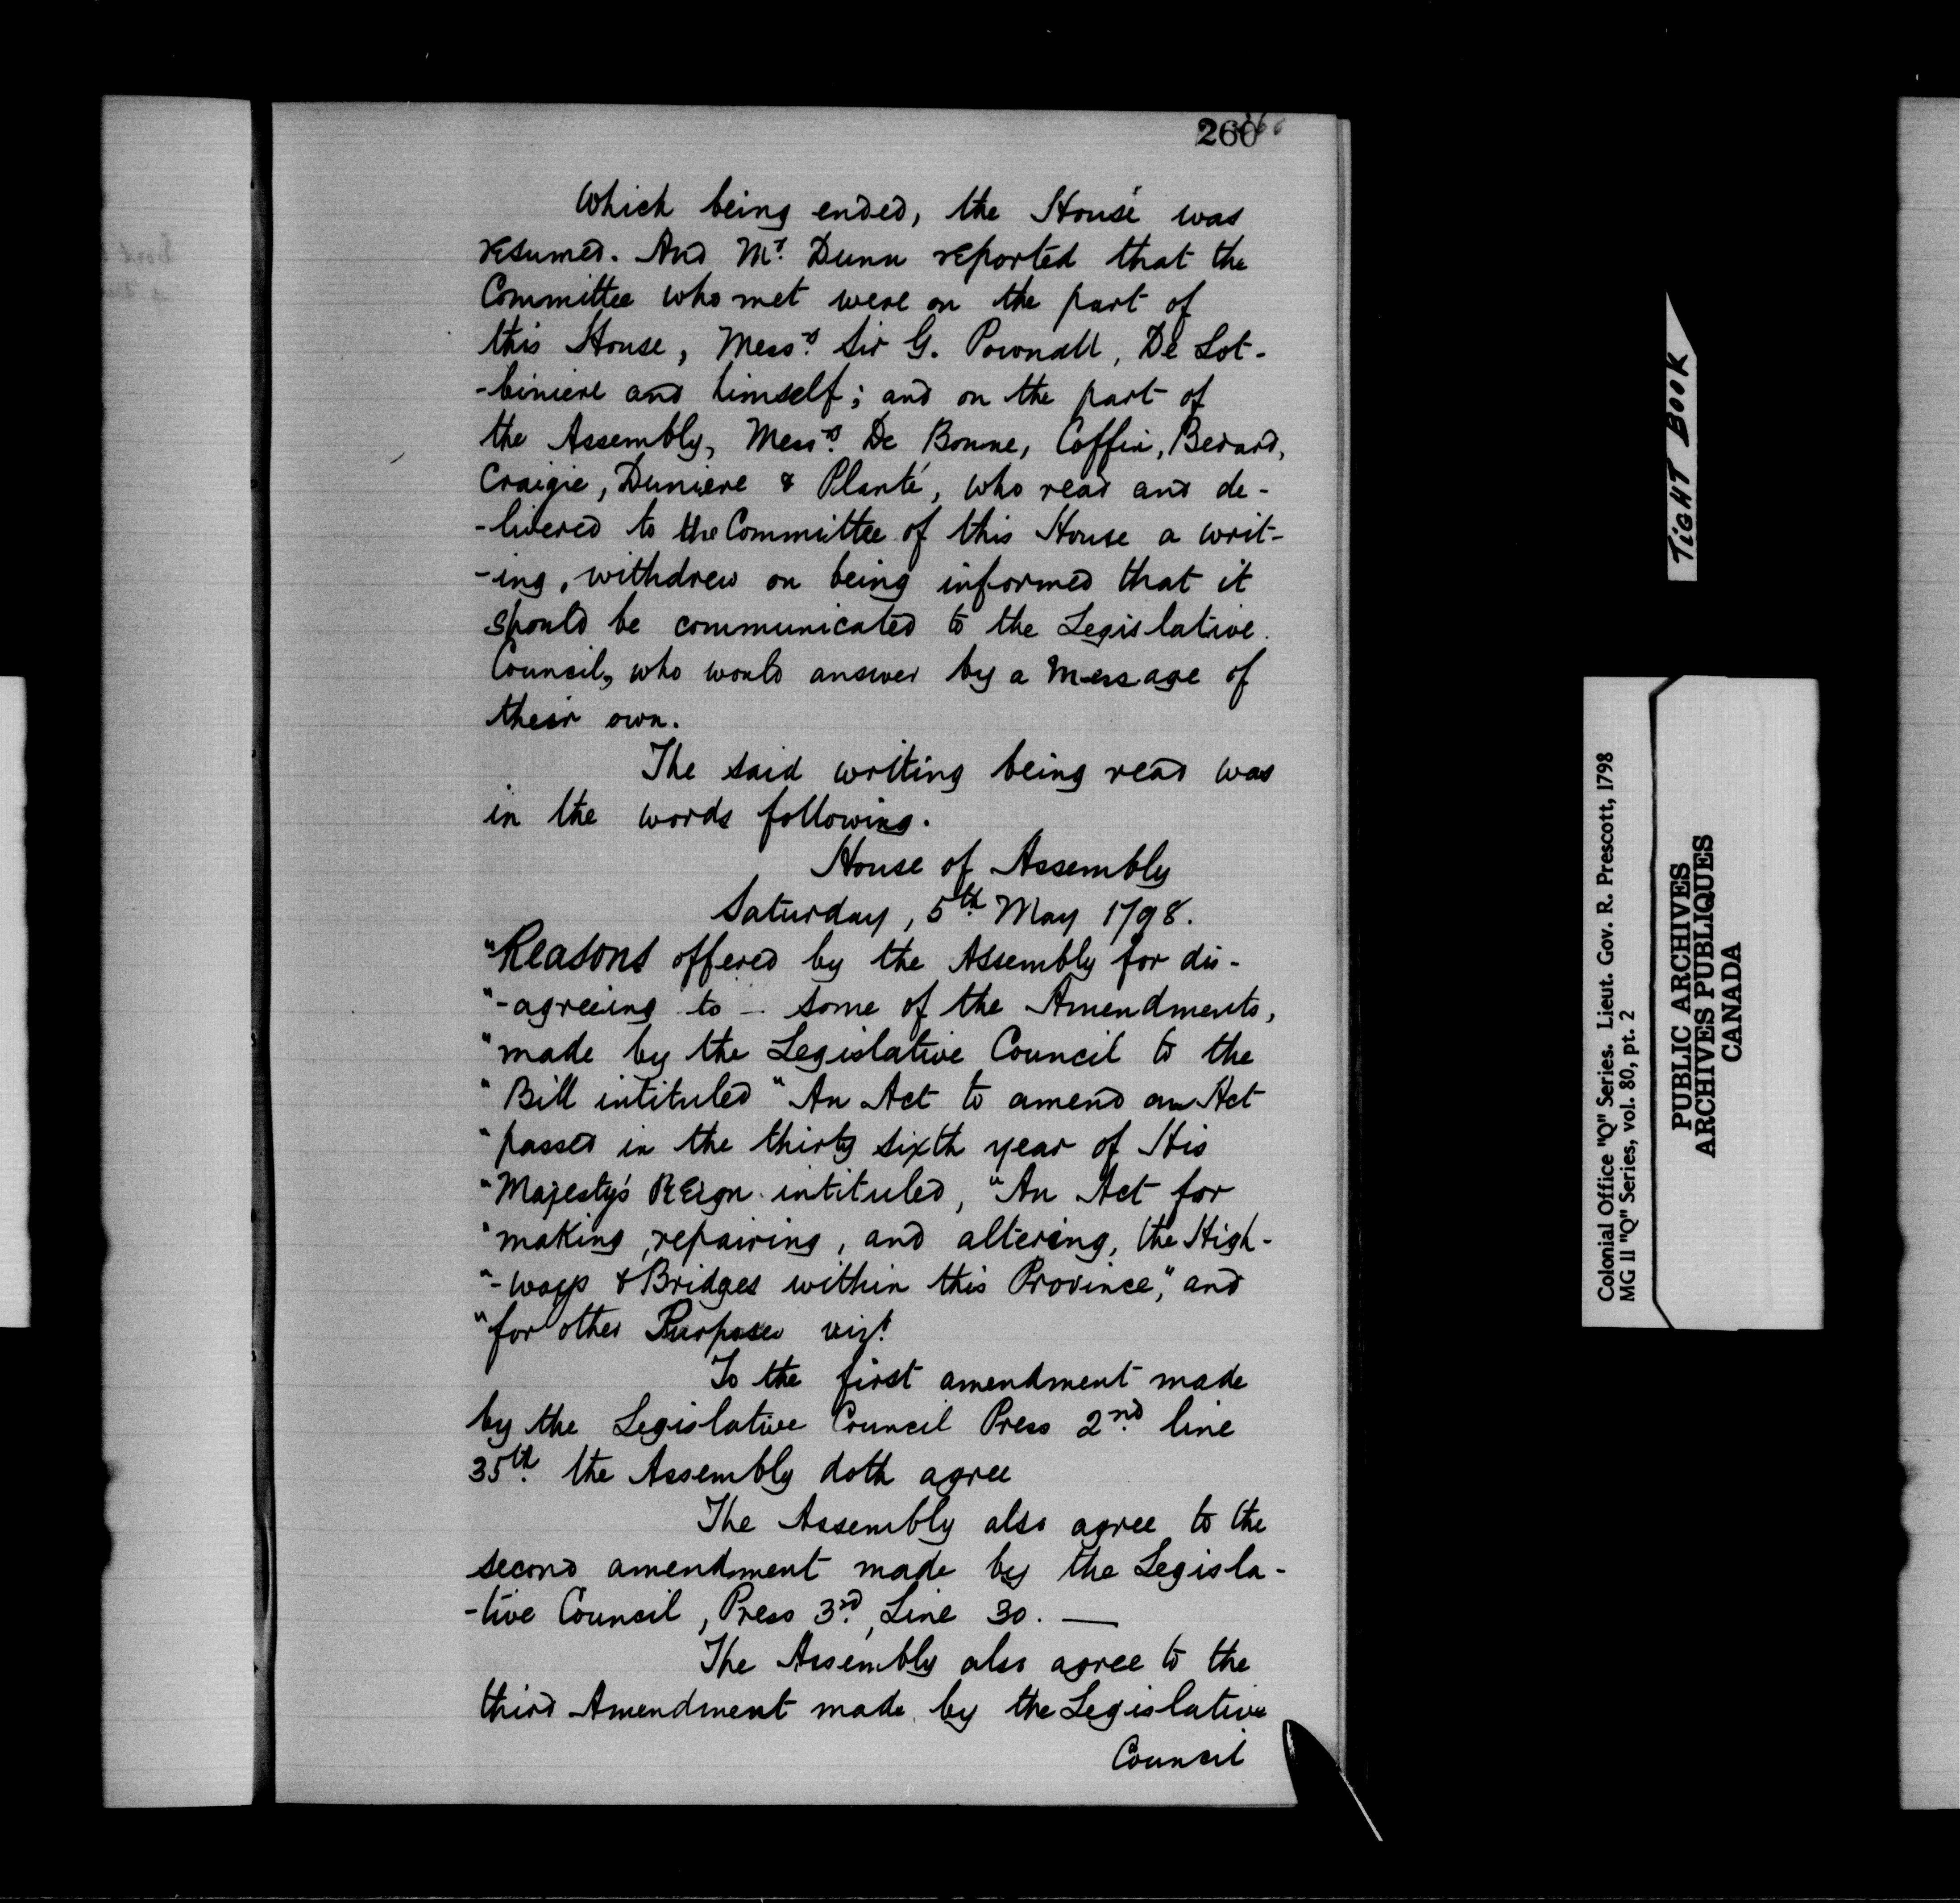 260
Which being ended, the House was
resumed. And Mr. Dunn reported that the
Committee who met were on the part of
this House, Messrs. Sir G. Pownall, De Lot-
-biniere and himself; and on the part of
the Assembly, Messrs. De Bonne, Coffin, Berard,
Craigie, Duniere & Planté, who read and de-
-livered to the Committee of this House a writ-
-ing, withdrew on being informed that it
should be communicated to the Legislative
Council, who would answer by a Message of
their own.
The said writing being read was
in the words following.
House of Assembly
Saturday, 5th. May 1798.
"Reasons offered by the Assembly for dis-
"-agreeing to - some of the Amendments,
"made by the Legislative Council to the
"Bill intituled "An Act to amend an Act
"passed in the thirty sixth year of His
"Majesty's Reign intituled, "An Act for
"making, repairing, and altering, the High-
"-ways & Bridges within this Province," and
"for other Purposes vizt.
To the first amendment made
by the Legislative Council Press 2nd. line
35th. the Assembly doth agree
The Assembly also agree to the
second amendment made by the Legisla-
-tive Council, Press 3rd., Line 30. —
The Assembly also agree to the
third Amendment made by the Legislative
Council
TIGHT BOOK
Colonial Office "Q" Series. Lieut. Gov. R. Prescott, 1798
MG 11 "Q" Series, vol. 80, pt. 2
PUBLIC ARCHIVES
ARCHIVES PUBLIQUES
CANADA